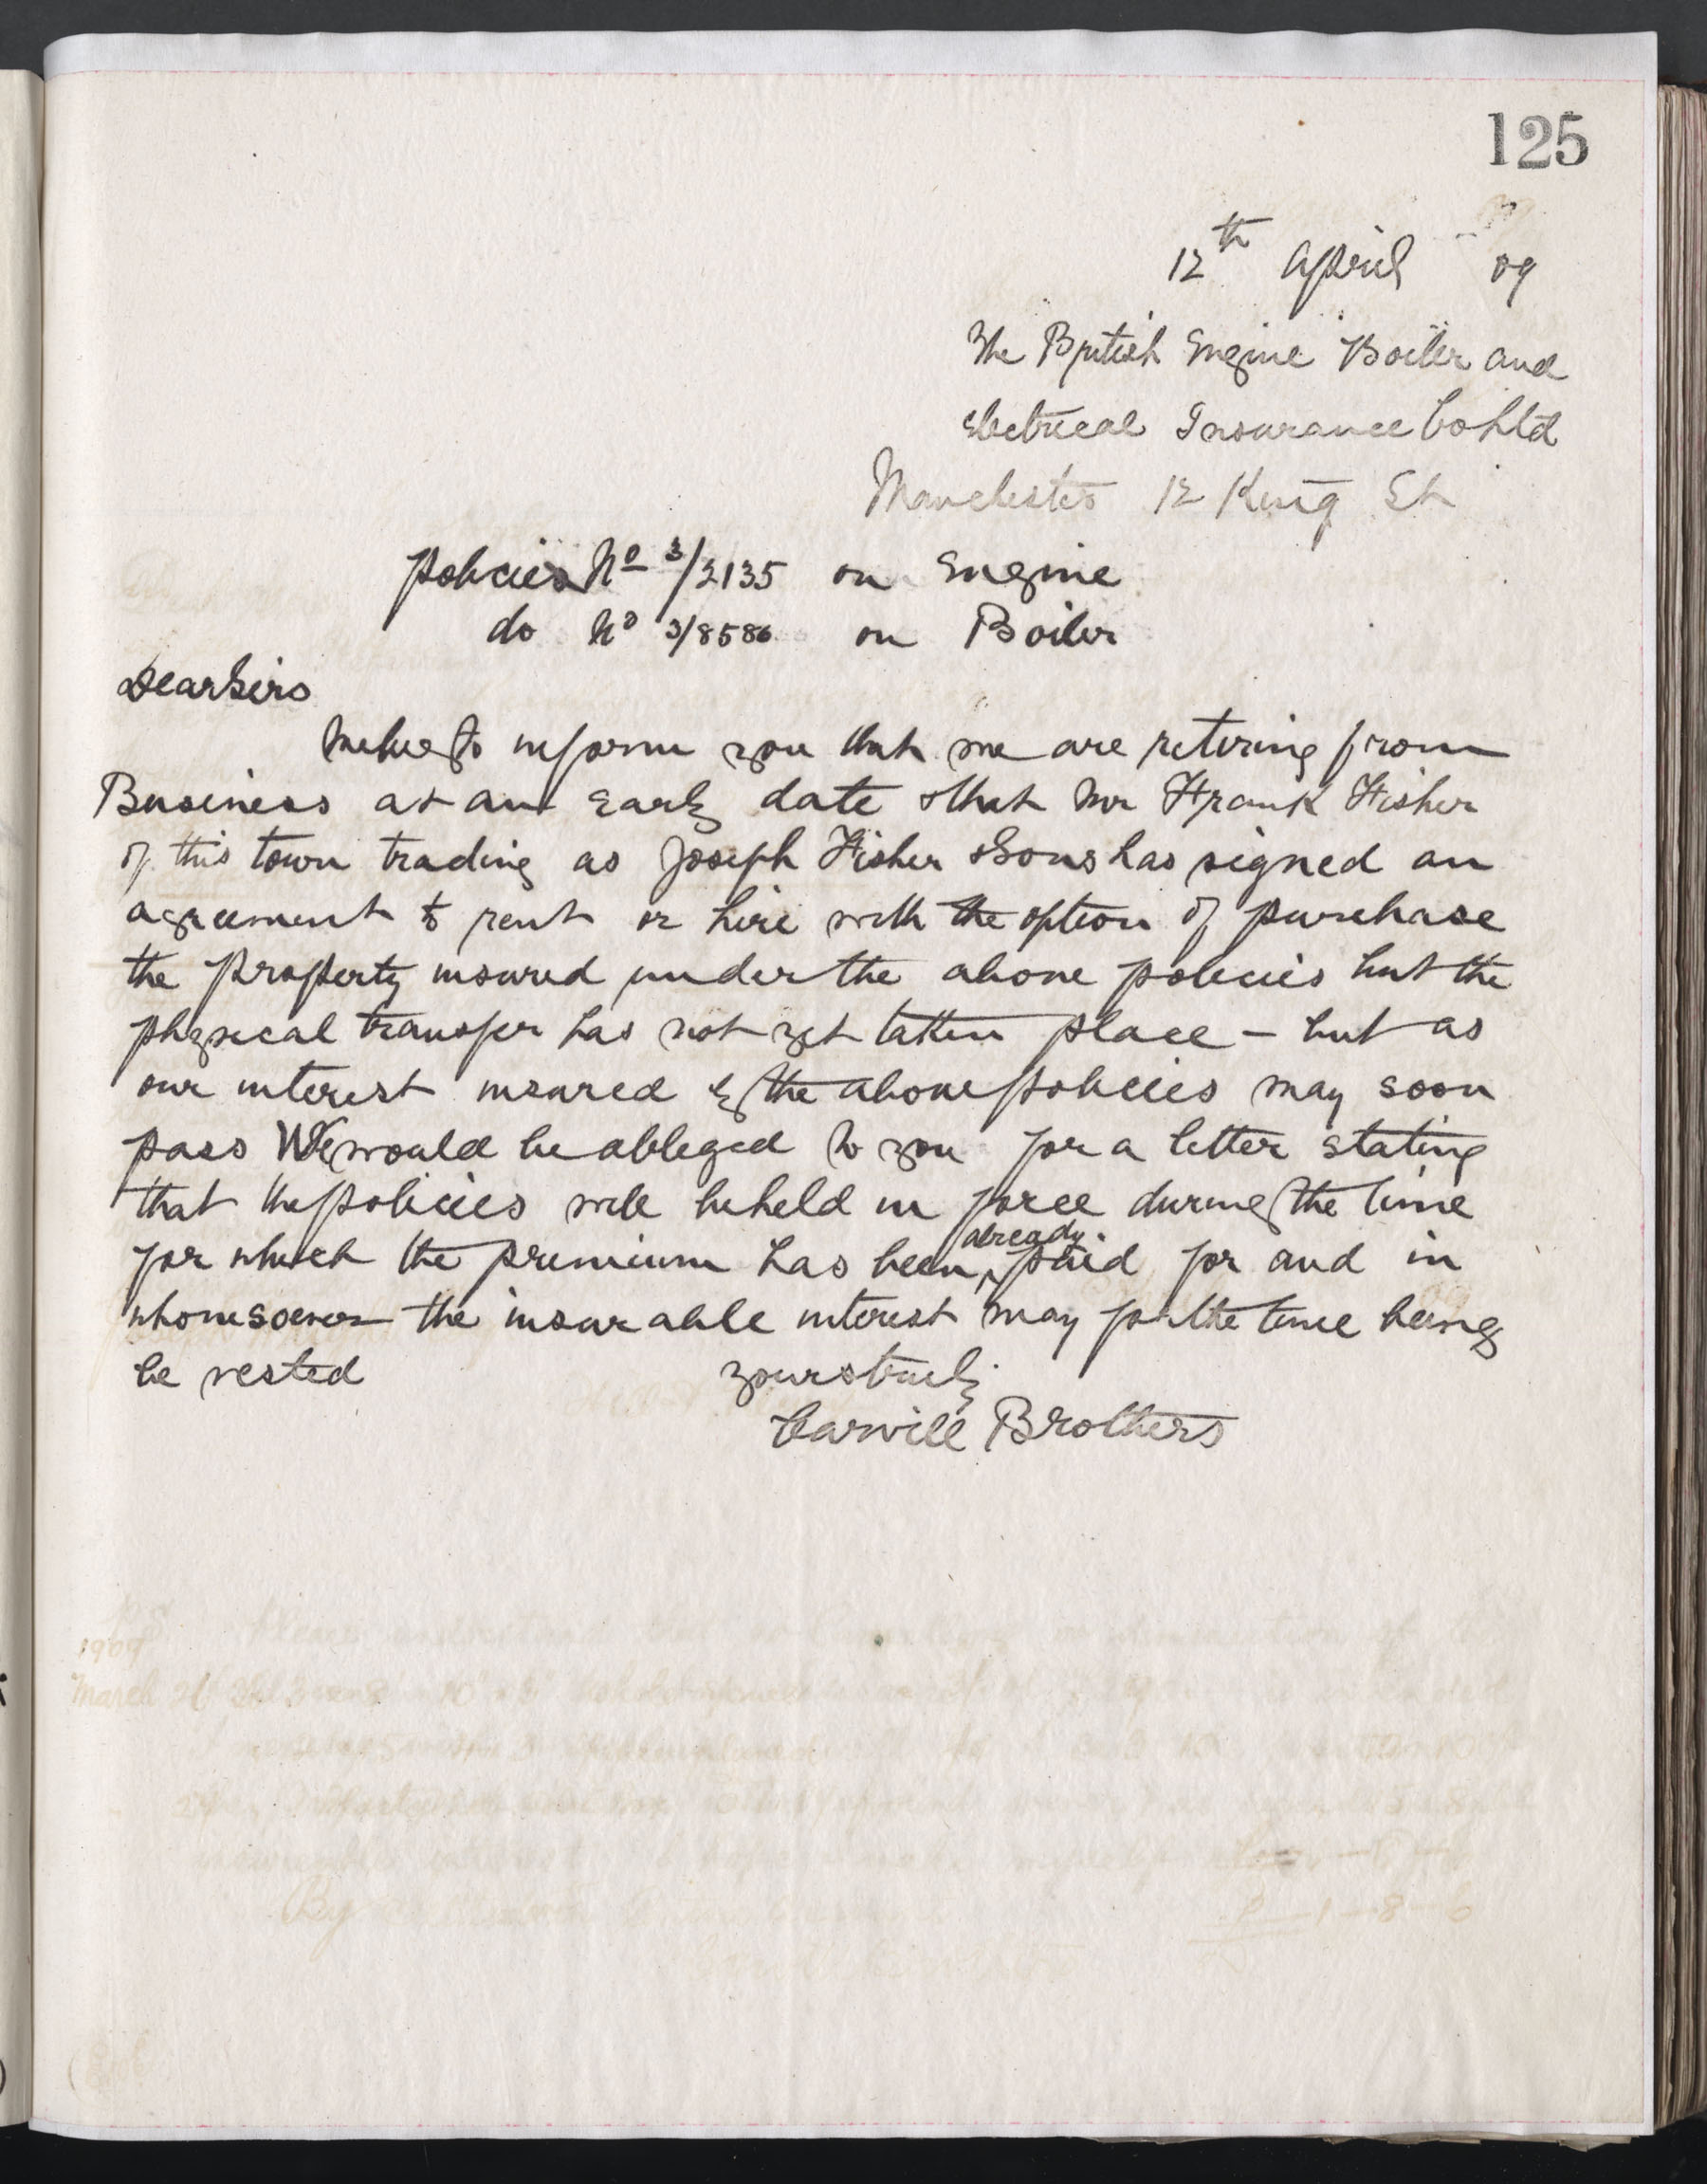 125
12th April 09
The British Engine Boiler and
Electrical Insurance Co Ltd
Manchester 12 King St
policies No 3/2135 on Engine
do No 3/8586 on Boiler
Dear Sirs
We beg to inform you that we are retiring from
Business at an Early date & that Mr Frank Fisher
of this town trading as Joseph Fisher & Sons has signed an
agreement to rent or hire with the option of purchase
the property insured under the above policies but the
physical transfer has not yet taken place - but as
our interest insured by the above policies may soon
pass We would be obleged to you for a letter stating
that the policies will be held in force during the time
for which the premium has been already paid for and in
whomsoever the insurable interest may for the time being
be vested
yours truly
Carvill Brothers
1909
March
By
1-8-6